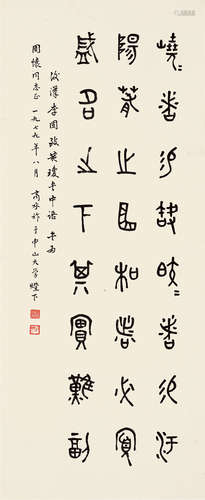 嶢〻者易缺皎〻者易汙
陽春之曲和者必寡
盛名之下其實難副
後漢李固致黃瓊書中語 書為
周懷同志正 一九七九年八月 商承祚于中山大學燈下